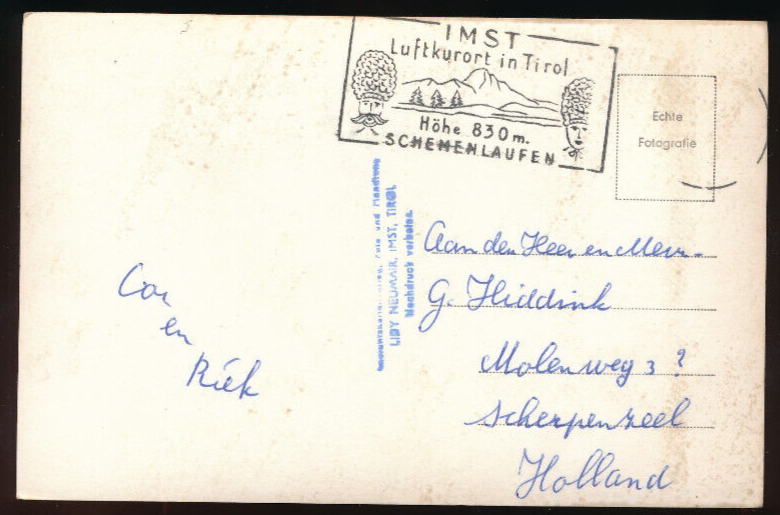 IMST
Luftkurort in Tirol
Höhe 830m.
SCHEMENLAUFEN
Echte
Fotografie
Foto und Handlung
LIDY NEUMAIR, IMST, TIROL
Nachdruck verboten.
Cor
en
Riek
Aan den Heer en Mevr.
G. Hiddink
Molenweg 3 ?
Scherpenzeel
Holland